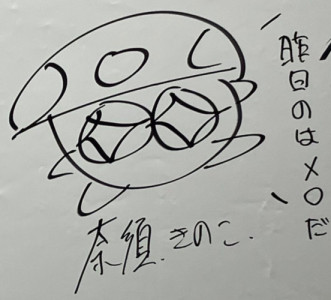 昨日のは×〇だ
奈須きのこ.